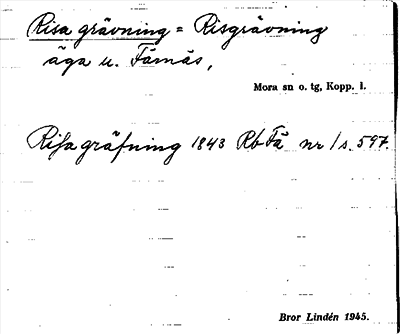 Risa grävning = Risgrävning
äga u. Färnäs,
Mora sn o. tg, Kopp. l.
Risagräfning 1843 Rb Fä nr 1 s. 597.
Bror Lindén 1945.